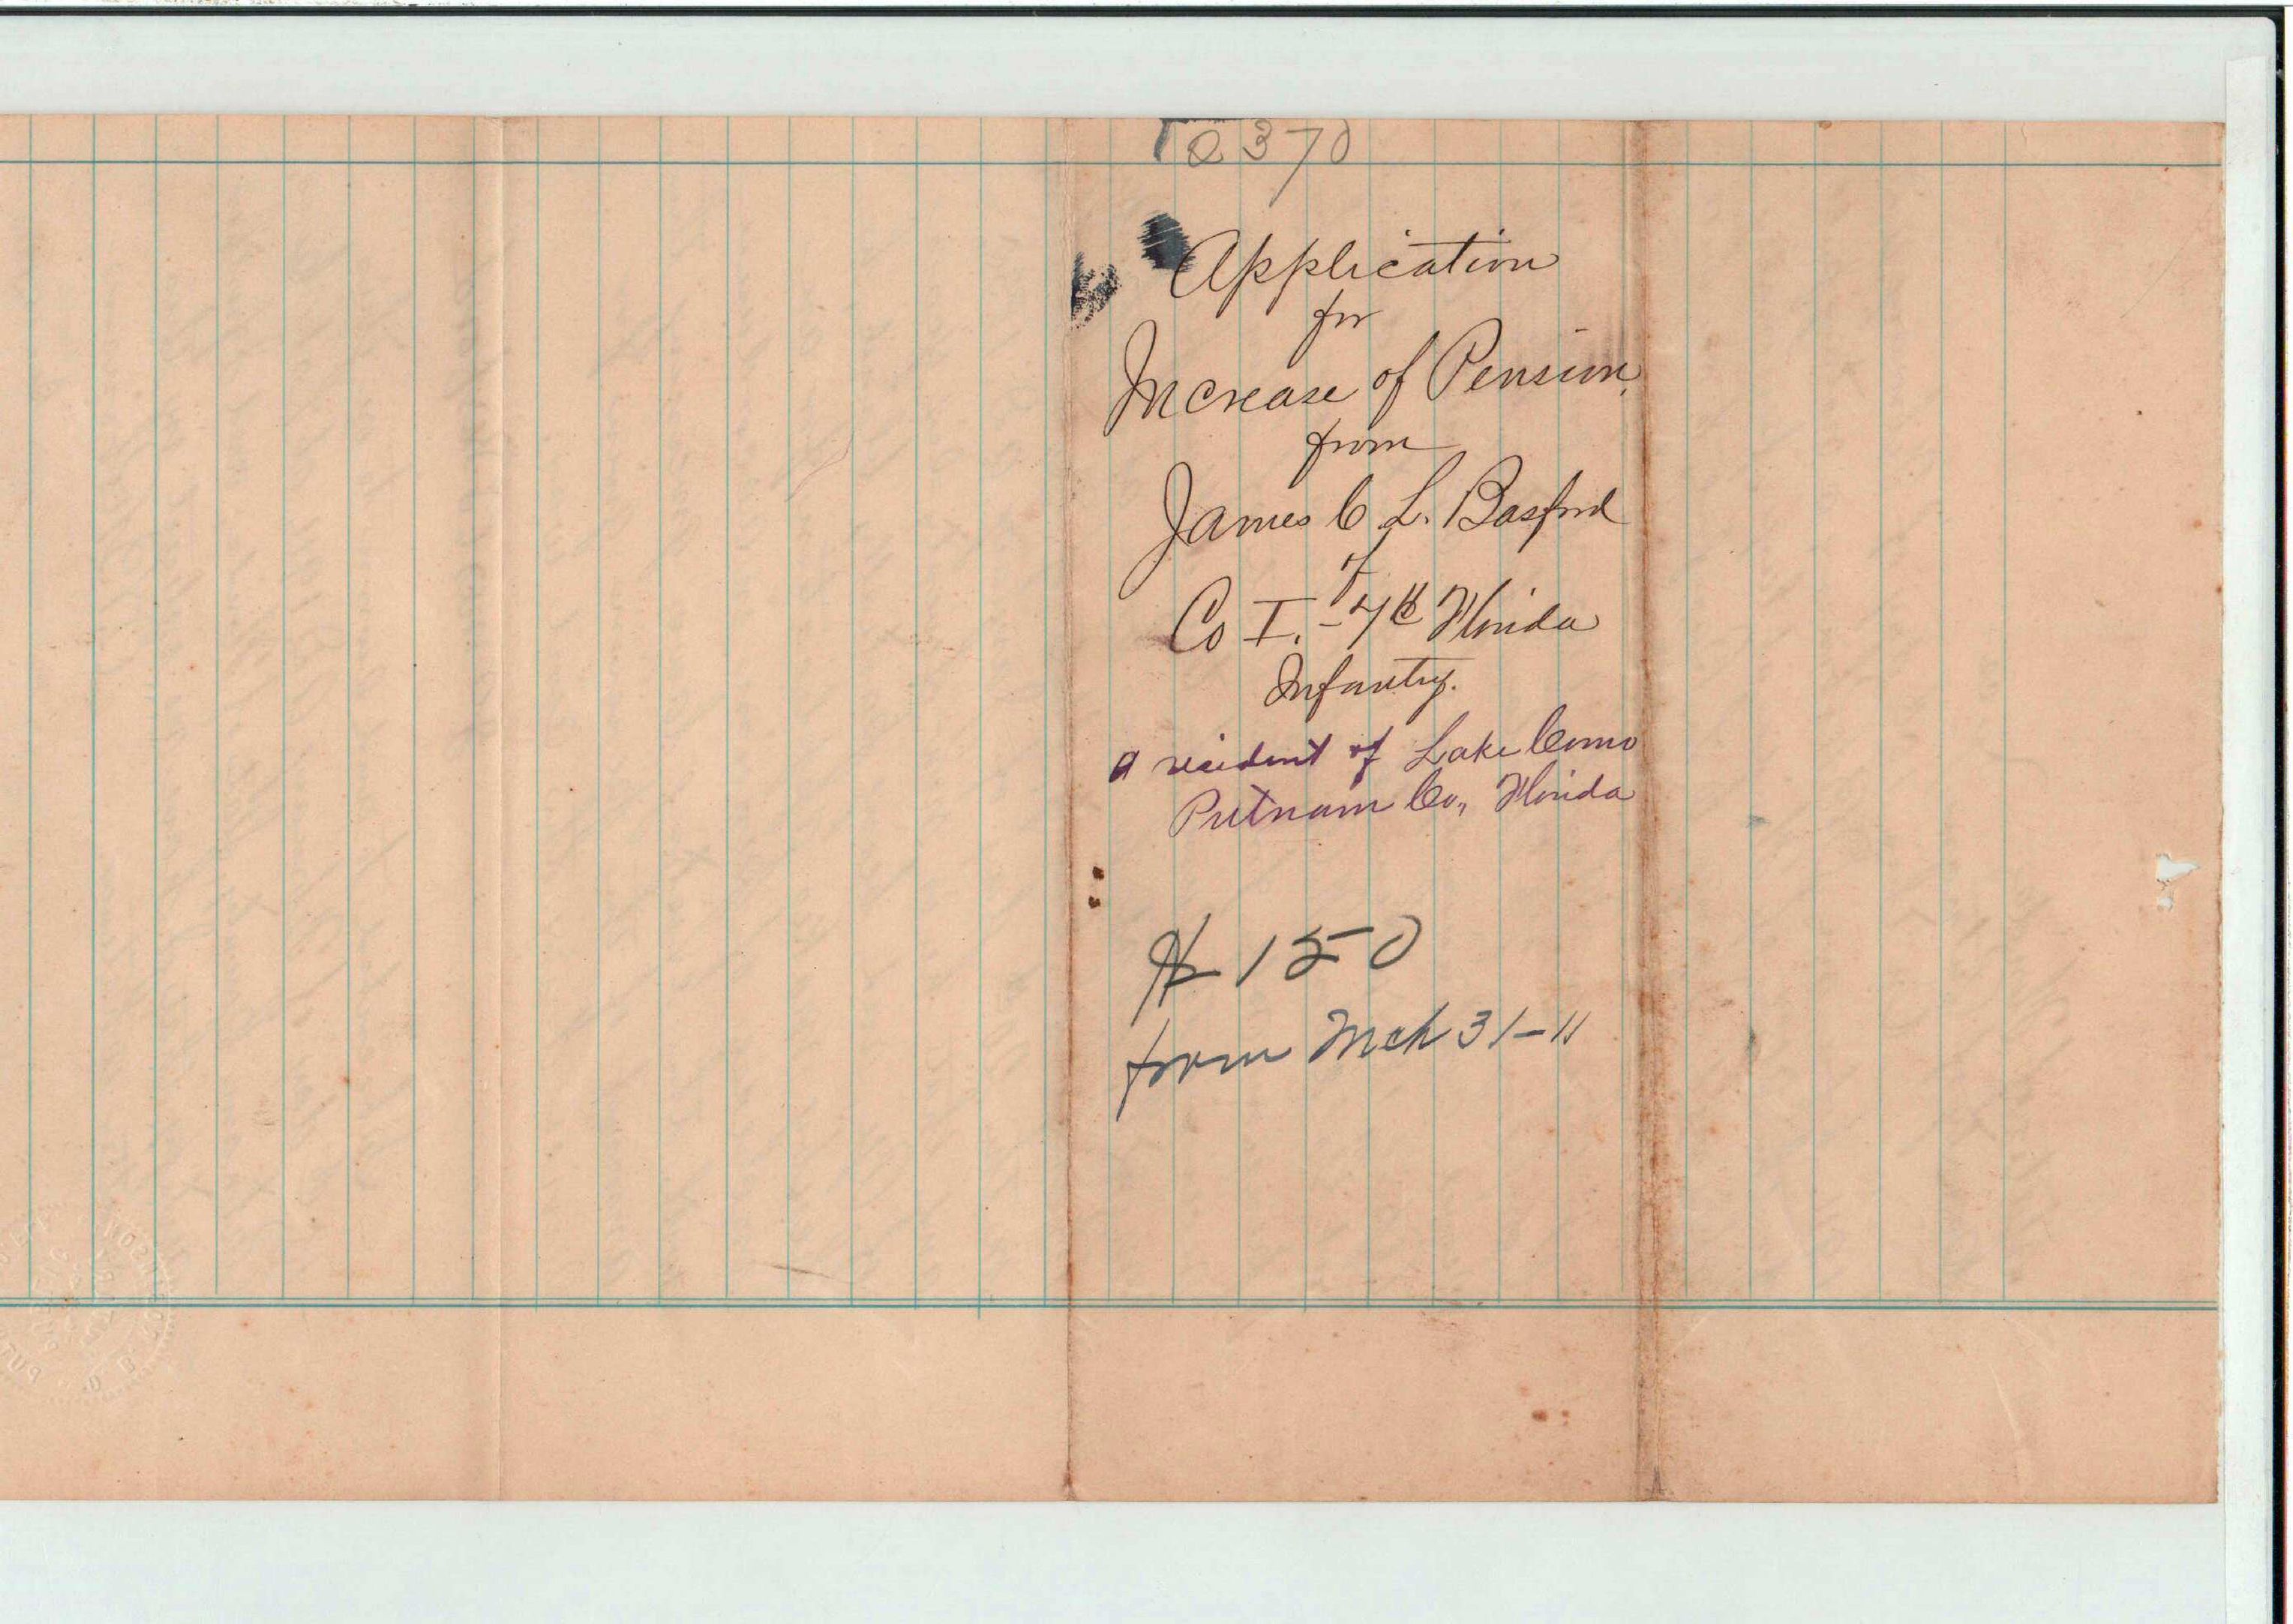 0370
Application
for
Increase of Pension.
from
James C L. Basford
of
Co I. - 7th Florida
Infantry.
a resident of Lake Como
Putnam Co, Florida
$150
from Mch 31-11